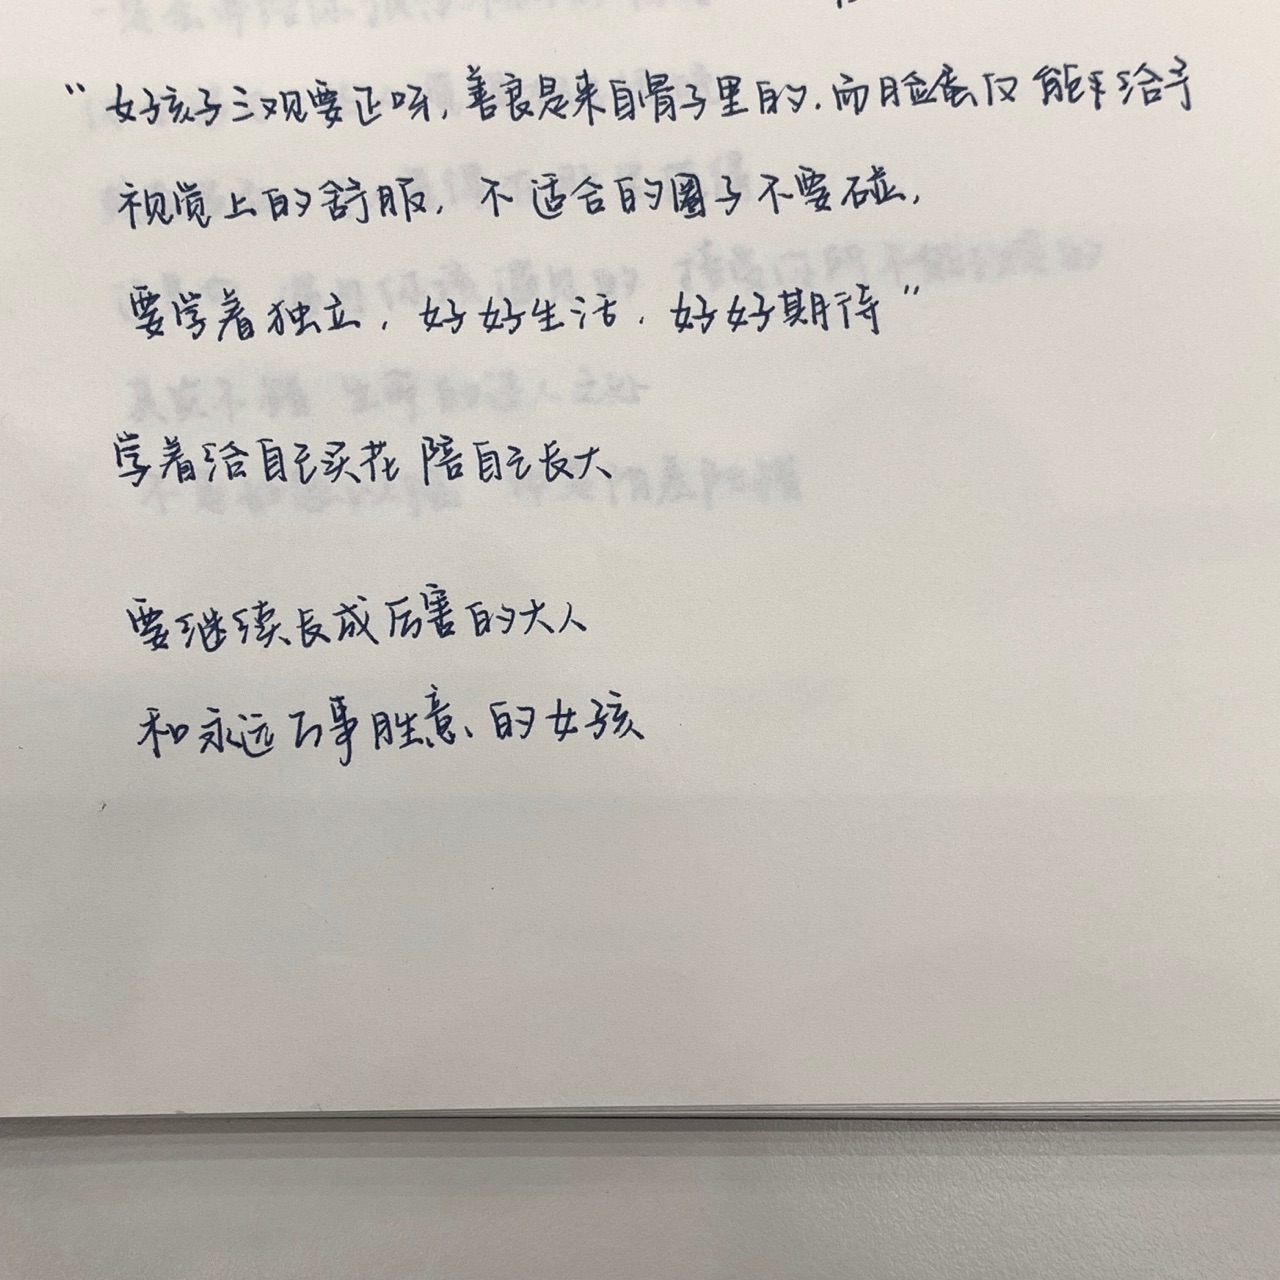 “女孩子三观要正呀,善良是来自骨子里的.而脸蛋仅能给予
视觉上的舒服,不适合的圈子不要碰,
要学着独立,好好生活.好好期待”
学着给自己买花 陪自己长大
要继续长成厉害的大人
和永远万事胜意、的女孩